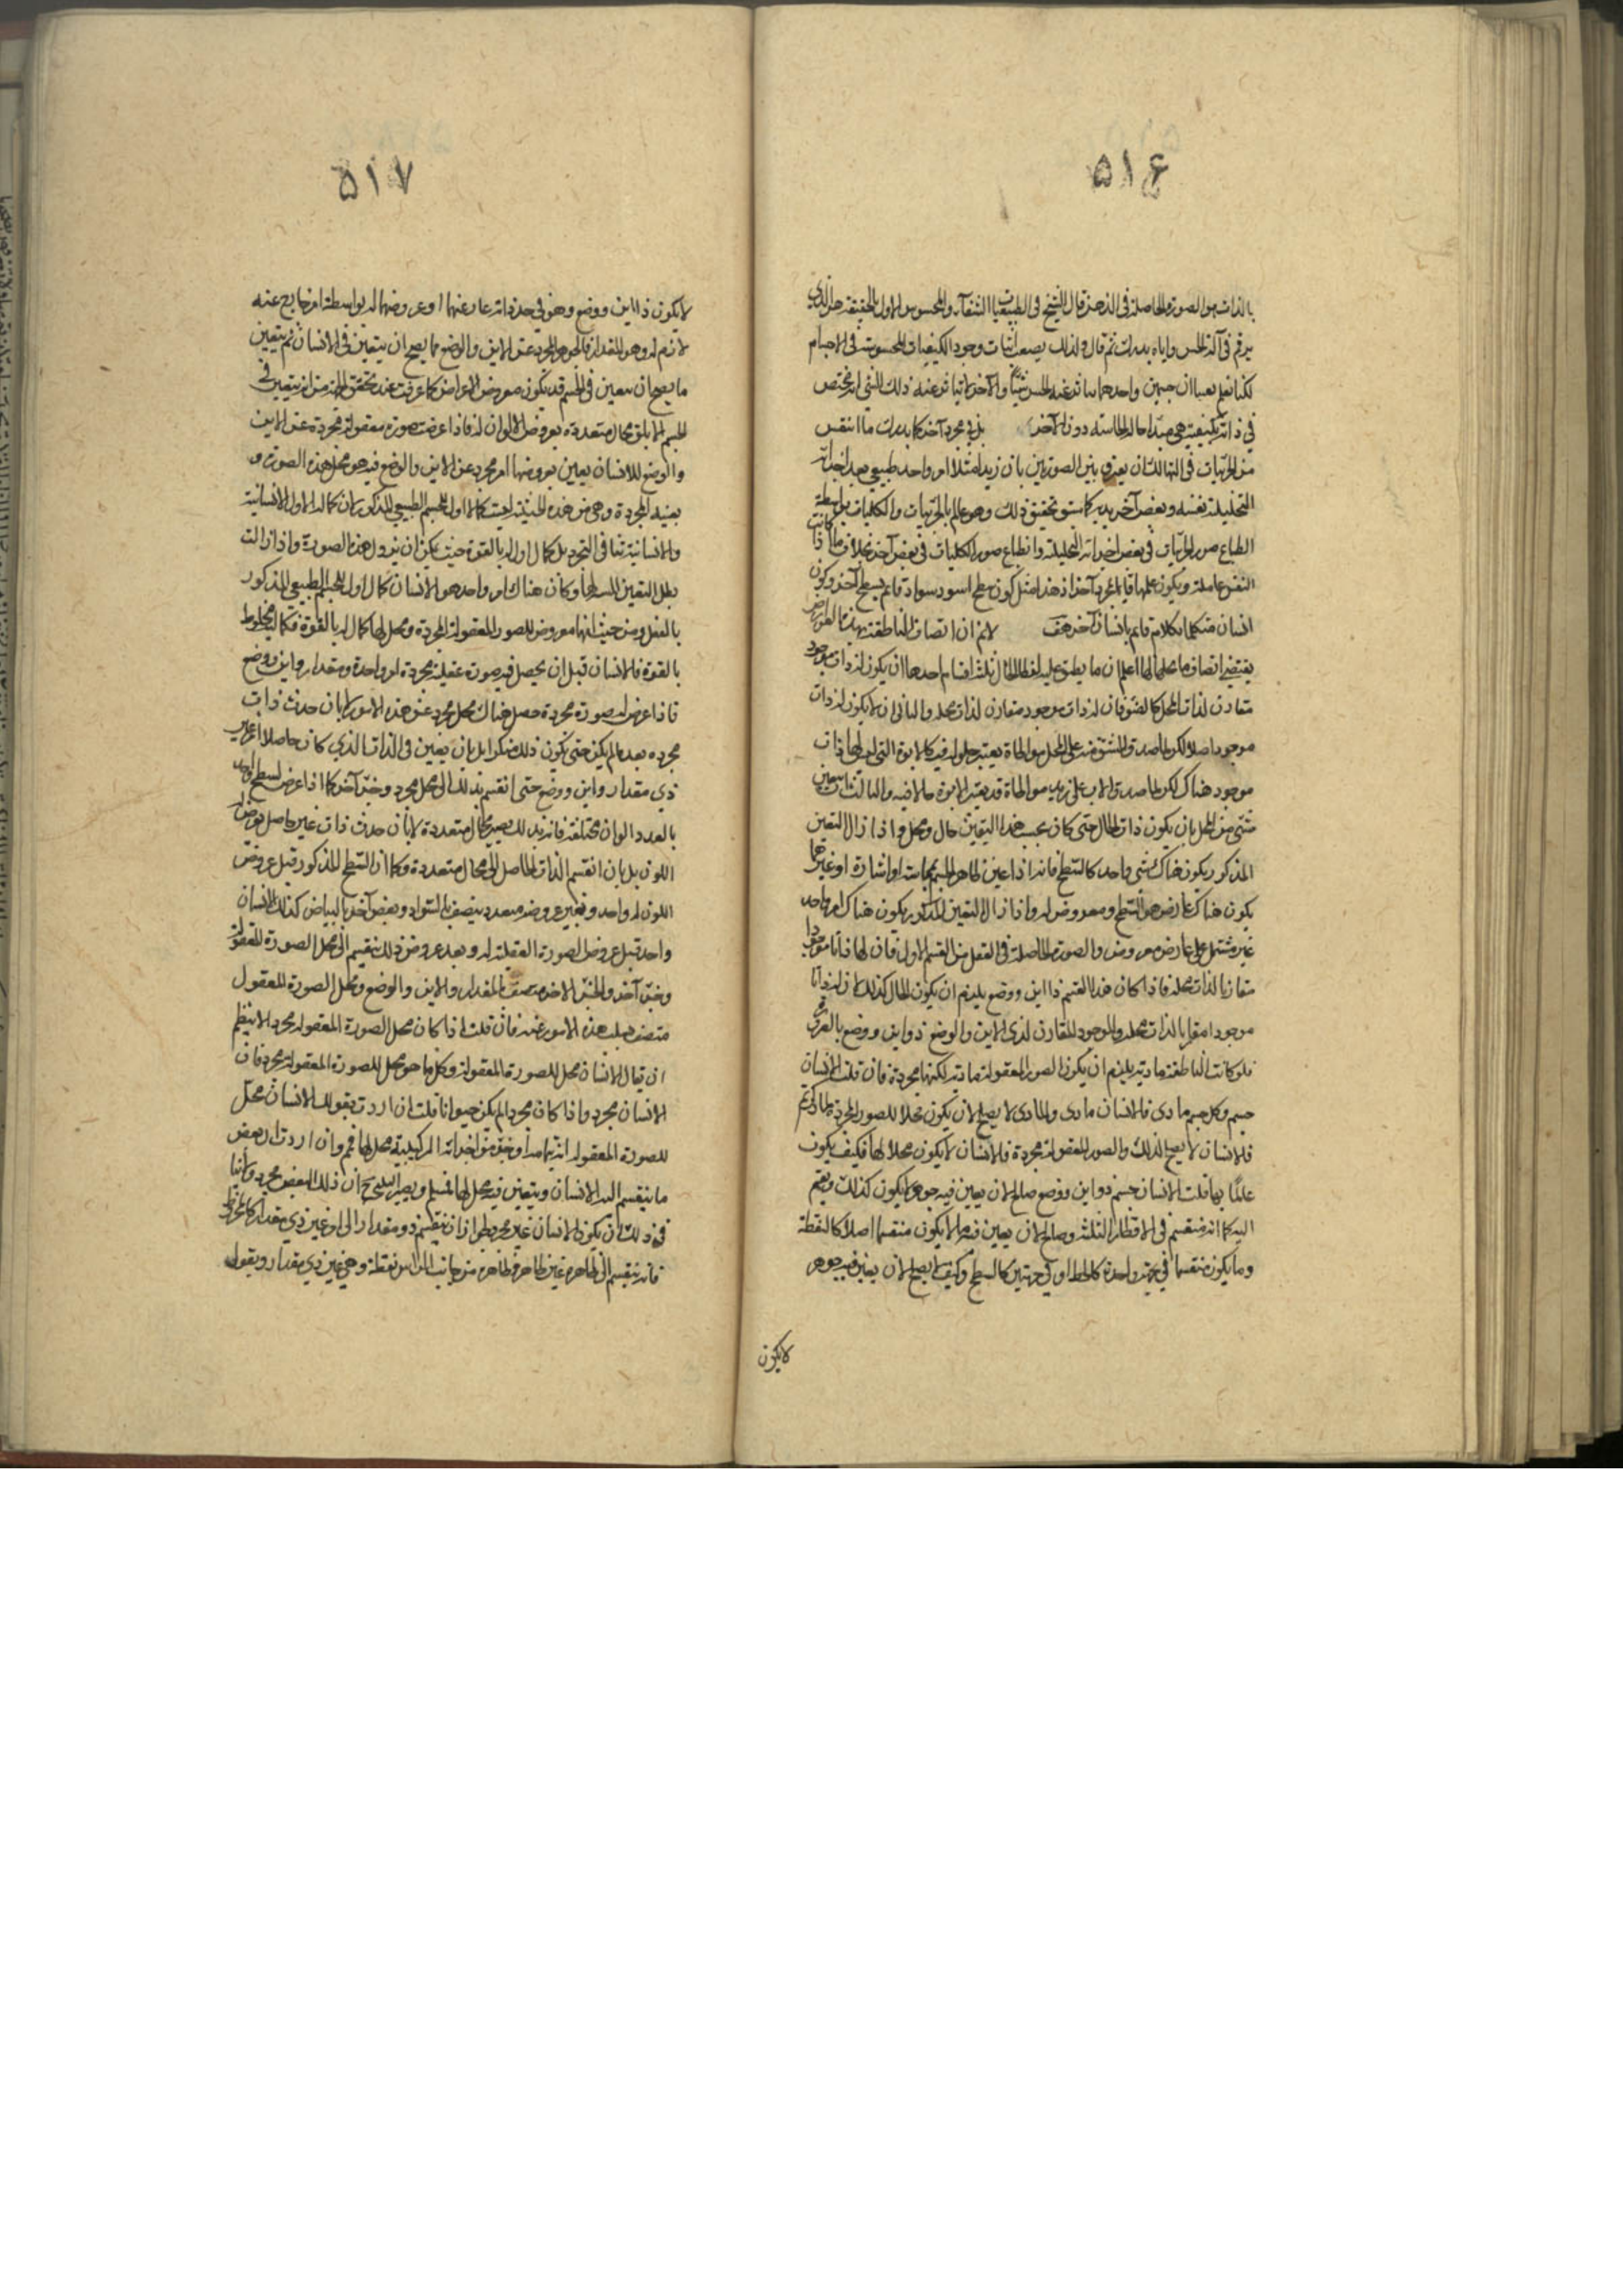 ۵۱۶
بالذات هو الصورة الحاصلة فى الذهن قال الشيخ فى طبيعيات الشفآء والمحسوس الاول بالحقيقة هو الذي
يرتسم فى آلة الحس واياه يدرك ثم قال ولذلك يصعب اثبات وجود الكيفيات المحسوسة فى الاجسام
لكنا نعلم يقينا ان جسمين واحدهما يتاثر عنه الحس شيئا والآخر لا يتاثر عنه ذلك الشى انه مختص
في ذاته بكيفية هي مبدا احالة الحاسة دون الآخر بل في مجرد آخر كما يدرك ما انتقش
من الجزئيات فى التها لك ان يعرف بين الصورتين بان زيدا مثلا امر واحد طبيعي بعد اجزائه
التحليلية نفسه وبعض آخر بدنه كما ستو تحقيق ذلك وهو عالم بالجزئيات والكليات بواسطة
انطباع صور الجزئيات فى بعض اجزائه التحليلية وانطباع صور الكليات فى بعض آخر بخلاف ما اذا كانت
النفس عاملة ويكون علمها قايما بمجرد آخر اذ هذا مثل كون سطح اسود بسواد قايم بسطح آخر وكون
انسان متكلما بكلام قايم بانسان آخر هف لانم ان اتصاف الناطقة بهذه العوارض
يقتضي اتصاف ما محلها لها اعلم ان ما يطلق عليه لفظ الحال ثلثة اقسام احدها ان يكون له ذات موجود
مقارن لذات المحل كالضوء فان له ذات موجود مقارن لذات محله والثانى ان لا يكون له ذات
موجود اصلا لكن لما صدق المشتق منه على المحل مواطاة يعتبر حلوله فيه كالابوة التى ليس لها ذات
موجود هناك لكن لما صدق الاب على زيد مواطاة قد يعتبر الابوة حالا فيه والثالث ان يتعين
شئ من المحل بان يكون ذات الحال حتى كان بحسب هذا التعين حال ومحل واذا زال التعين
المذكور يكون هناك شى واحد كالسطح فانه اذا عين ظاهر الجسم بمماسة او اشارة او غيرهما
يكون هناك عارض هو السطح ومعروض له واذا زال التعين المذكور يكون هناك امر واحد
غير مشتمل على عارض ومعروض والصورة الحاصلة فى العقل من القسم الاول فان لها ذاتا موجودا
مقارنا لذات محله فاذا كان هذا القسم ذا اين ووضع يلزم ان يكون الحال كذلك لان له ذاتا
موجودا مقارنا لذات محله والموجود المقارن لذى الاين والوضع ذو اين ووضع بالعرض
فلو كانت الناطقة مادية يلزم ان يكون الصور المعقولة مادية لكنها مجردة فان قلت الانسان
جسم وكل جسم مادى فالانسان مادى والمادى لا يصلح لان يكون محلا للصور المجردة لما ذكرتم
فالانسان لا يصلح لذلك والصور المعقولة مجردة فالانسان لا يكون محلا لها فكيف يكون
عالما بها قلت الانسان جسم ذو اين ووضع صالح لان يعين فيه جوهر لا يكون كذلك ويقسم
اليه كما انه منقسم فى الاقطار الثلثة وصالح لان يعين فيه ما لا يكون منقسما اصلا كالنقطة
وما يكون منقسما في جهة واحدة كالخط او في جهتين كالسطح وكيف لا يصلح لان يعين فيه جوهر
لايكون
۵۱۷
لايكون ذا اين ووضع وهو في حد ذاته عار عنهما او عروضهما له بواسطة امر خارج عنه
لازم له وهو المقدار فالجوهر المجرد عن الاين والوضع مما يصح ان يتعين فى الانسان ثم يتعين
ما يصح ان يتعين فى الجسم قد تكون بعروض الاعراض كما عرفت عند تحقيق الجسم من انه يتعين في
الجسم الابلق محال متعددة بعروض الالوان له فاذا عرضت صورة معقولة مجردة عن الاين
والوضع للانسان يعين بعروضها امر مجرد عن الاين والوضع فيه هو محل هذه الصورة و
بعينه المجردة وهى من هذه الحيثية ليست كمالا اول لجسم الطبيعي المذكور لان كماله الاول الانسانية
والانسانية تنافى التجرد بل كمال اول له بالقوة حيث يمكن ان يزول هذه الصورة واذا زالت
بطل التعين المسبب بها وكان هناك امر واحد هو الانسان كمال اول للجسم الطبيعي المذكور
بالفعل ومن حيث انها معروض للصور المعقولة المجردة ومحل لها كمال له بالقوة فكما المخلوط
بالقوة فالانسان قبل ان يحصل فيه صورة عقلية مجردة امر واحد ذو مقدار واين ووضع
فاذا عرض له صورة مجردة حصل هناك محل مجرد عن هذه الامور لا بان حدث ذات
مجردة بعد ما لم يكن حتى يكون ذلك منكرا بل بان يعين فى الذات الذي كان حاصلا امر غير
ذي مقدار واين ووضع حتى انقسم بذلك الى محل مجرد وجزء آخر كما اذا عرض لسطح واحد
بالعدد الوان مختلفة فانه بذلك يصير محال متعددة لا بان حدث ذات غير حاصل بعروض
اللون بل بان انقسم الذات الحاصل الى محال متعددة وكما ان السطح المذكور قبل عروض
اللون له واحد وتغير عروضه متعدد يتصف بالسواد وبعض آخر بالبياض كذلك الانسان
واحد قبل عروض الصورة العقلية له وبعد عروض ذلك ينقسم الى محل الصورة المعقولة
وجزء آخر والجزء الاخر متصف بالمقدار والاين والوضع ومحل الصورة المعقول
متصف بسلب هذه الامور عنه فان قلت اذا كان محل الصورة المعقولة مجردا لا ينتظم
ان يقال الانسان محل للصورة المعقولة وكل ما هو محل للصورة المعقولة مجرد فان
الانسان مجرد واذا كان مجردا لم يكن حيوانا قلت ان اردت بقولك الانسان محل
للصورة المعقولة انه بتمامه او جزء من اجزائه التركيبية محل لها فمم وان اردت ان بعض
ما ينقسم اليه الانسان ويتعين فيه محل لها فمسلم ويصير النتيجة ح ان ذلك البعض مجرد ولا ينا
في ذلك ان يكون الانسان غير مجرد لجواز ان ينقسم ذو مقدار الى امر غير ذي مقدار كالمخروط
فانه ينقسم الى ظاهره غير ظاهره فظاهره من جانب الراس نقطة وهى غير ذي مقدار ويقول